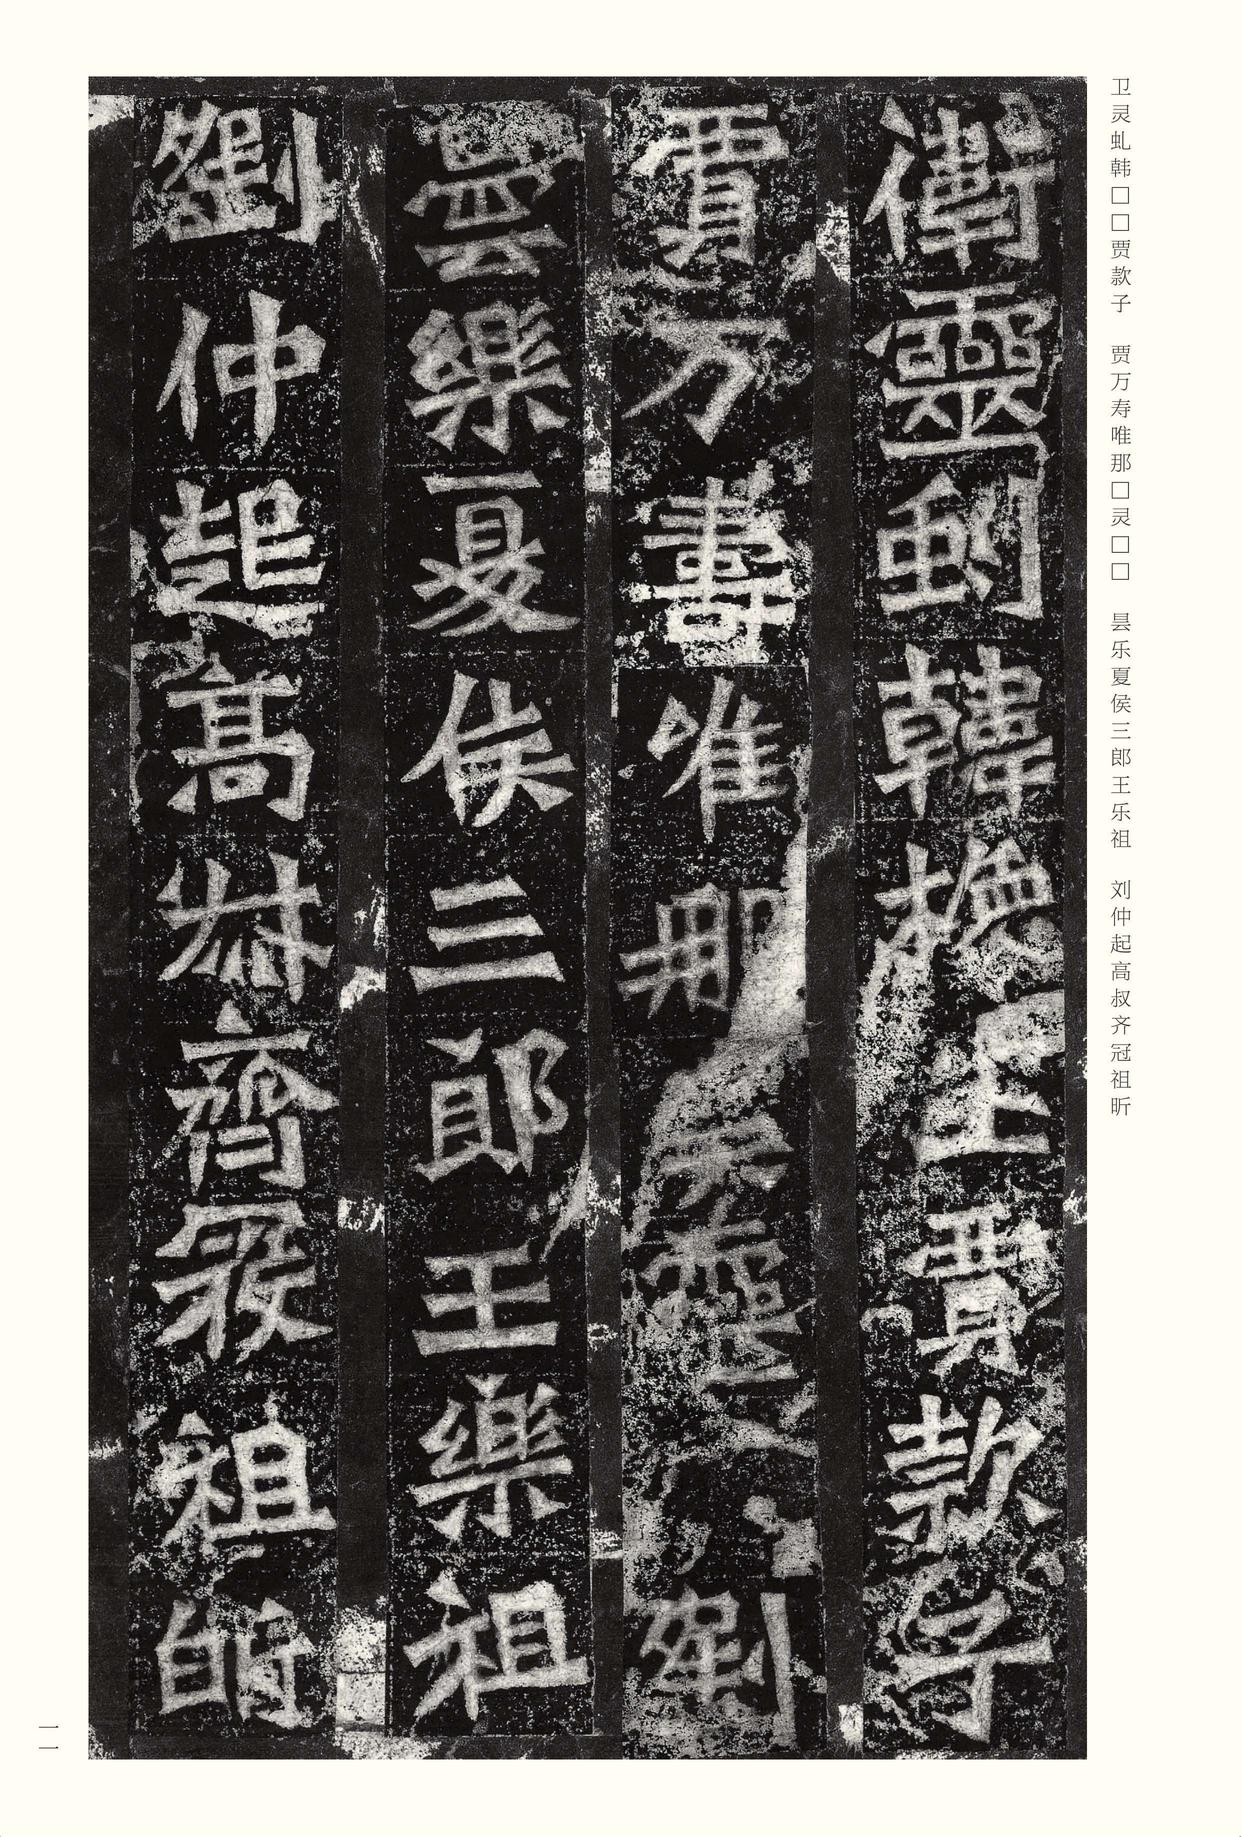 卫灵虬韩□□贾款子　贾万寿唯那□灵□□　昙乐夏侯三郎王乐祖　刘仲起高叔齐冠祖昕
衛靈虬韓
賈款子
賈万壽唯那
劉
曇樂夏侯三郎王樂祖
劉仲起高
齊
祖
一一